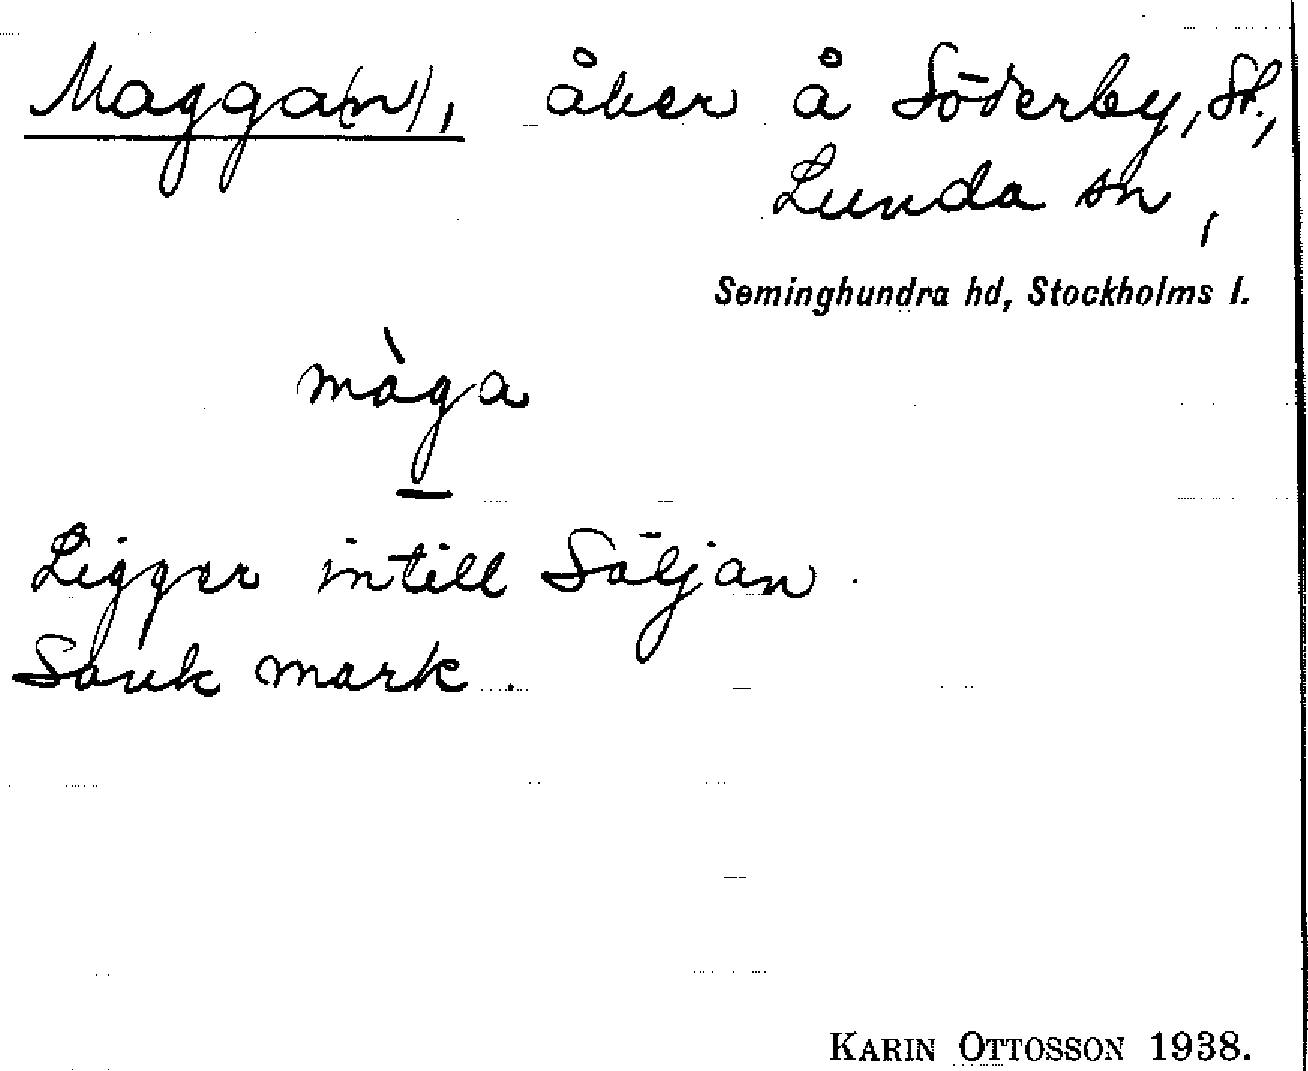 Magga(n), åker å Söderby, St.,
Lunda sn,
Seminghundra hd, Stockholms l.
màga
Ligger intill Söljan.
Sank mark.
KARIN OTTOSSON 1938.